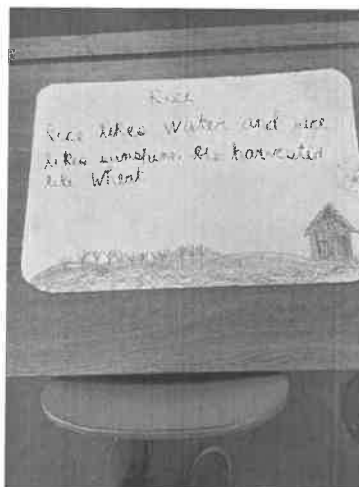 Rice
Rice likes water and
likes sunshine be harvested
like Wheat